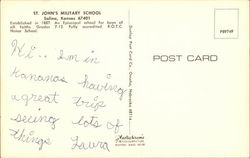 ST. JOHN'S MILITARY SCHOOL
Salina, Kansas 67401
Established in 1887. An Episcopal school for boys of
all faiths. Grades 7-12. Fully accredited R.O.T.C.
Honor School.
Hi.. I'm in
Kansas having
a great trip
seeing lots of
things Laura
POST CARD
Dunlap Post Card Co., Omaha, Nebraska 68114